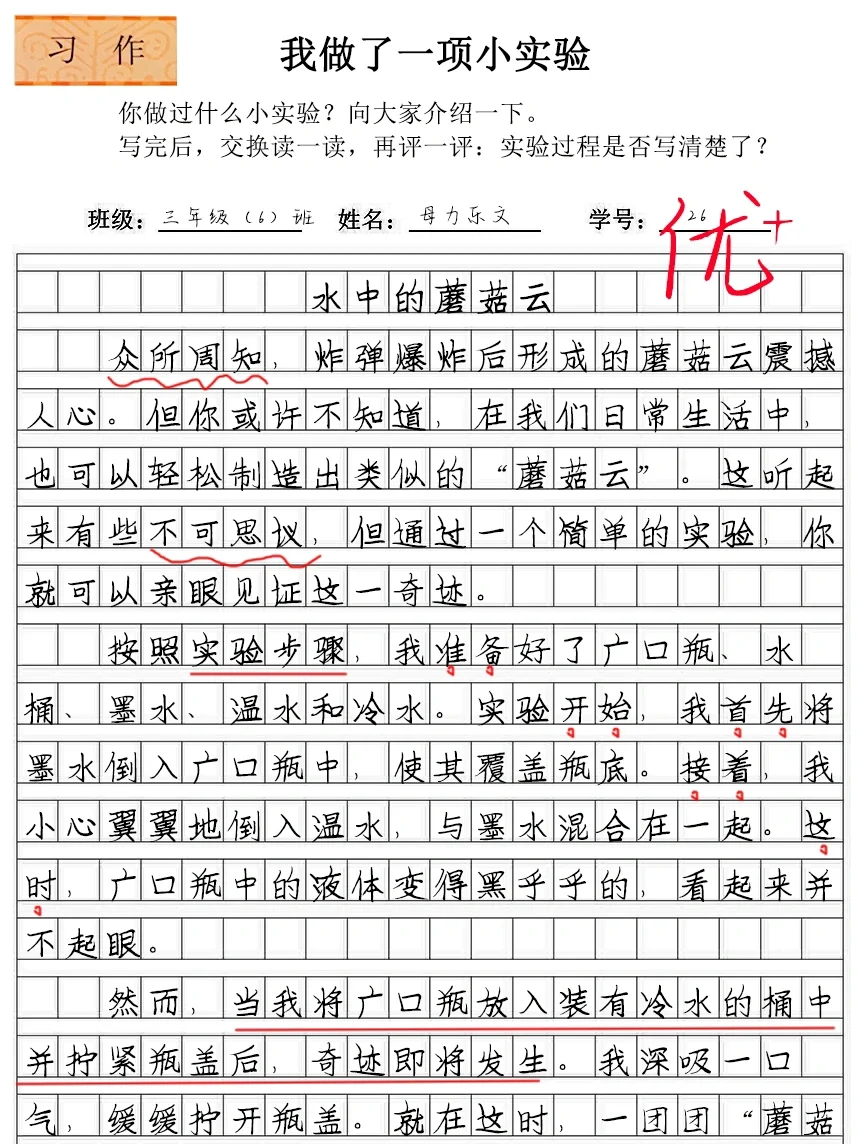 习 作
我做了一项小实验
你做过什么小实验？向大家介绍一下。
写完后，交换读一读，再评一评：实验过程是否写清楚了？
班级：三年级（6）班 姓名：母力乐文 学号：26
优+
水中的蘑菇云
众所周知，炸弹爆炸后形成的蘑菇云震撼
人心。但你或许不知道，在我们日常生活中，
也可以轻松制造出类似的“蘑菇云”。这听起
来有些不可思议，但通过一个简单的实验，你
就可以亲眼见证这一奇迹。
按照实验步骤，我准备好了广口瓶、水
桶、墨水、温水和冷水。实验开始，我首先将
墨水倒入广口瓶中，使其覆盖瓶底。接着，我
小心翼翼地倒入温水，与墨水混合在一起。这
时，广口瓶中的液体变得黑乎乎的，看起来并
不起眼。
然而，当我将广口瓶放入装有冷水的桶中
并拧紧瓶盖后，奇迹即将发生。我深吸一口
气，缓缓拧开瓶盖。就在这时，一团团“蘑菇